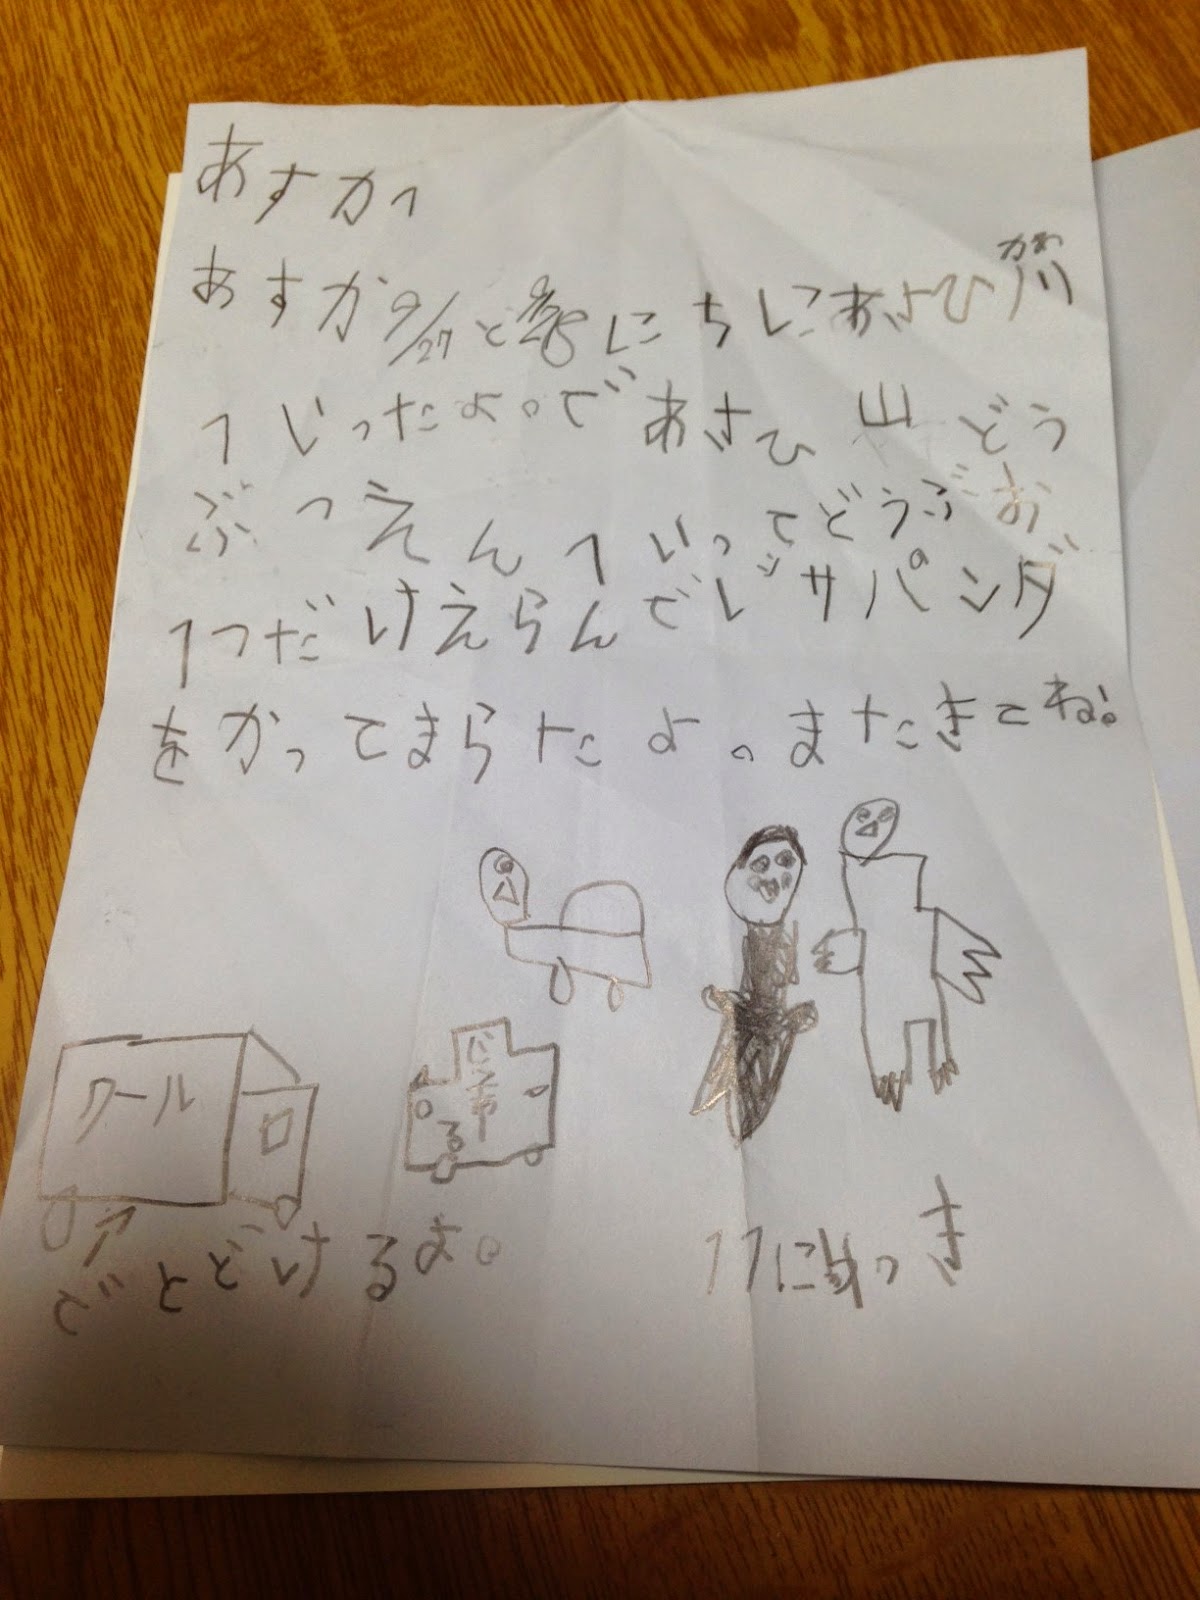 あすかへ
かわ
あすか9/27と28にちにあさひ川
へいったよ。であさひ山どう
ぶつえんへいってどうぶお
1つだけえらんでレッサパンダ
をかってまらたよ。またきてね。
クール
でとどけるよ。
11に